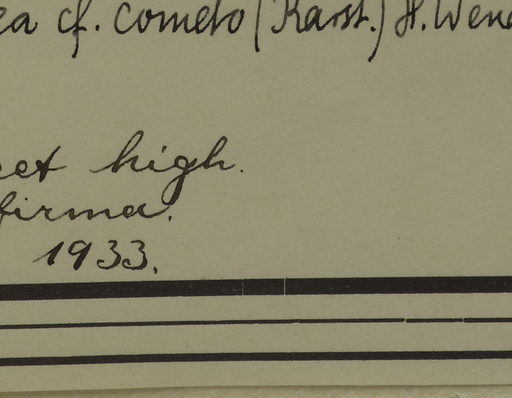 ea cf. cometo (Karst.) H. Wend
eet high.
firma.
1933.